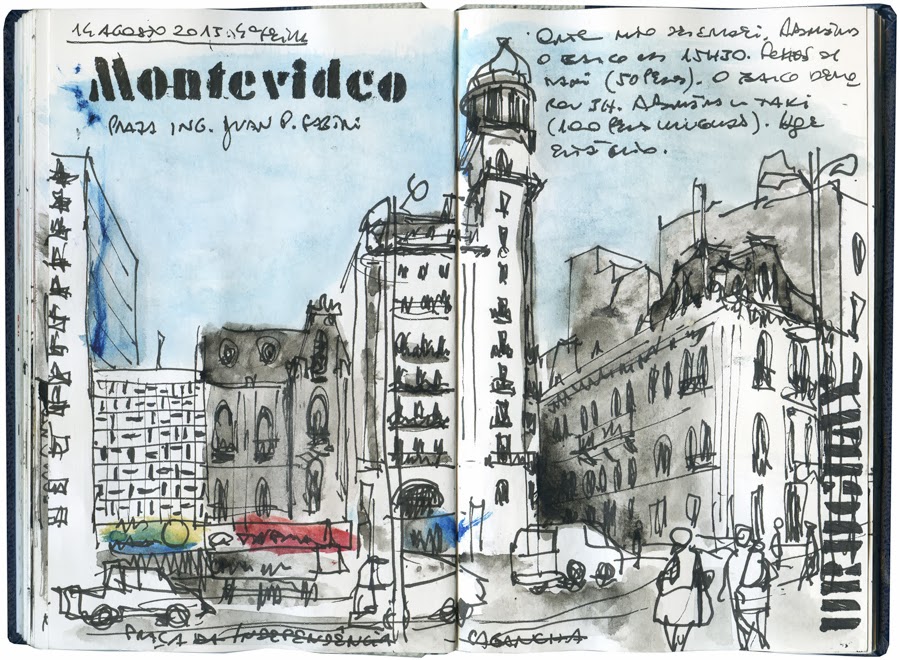 14 AGOSTO 2013. 4ª feira
Montevideo
PRAZA ING. JUAN P. FABINI
Ontem não desenhei. Apanhámos
o barco às 15H30. Fomos de
taxi (50 pesos). O barco demo
rou 3H. Apanhámos um taxi
(100 pesos uruguaios). Hoje
está frio.
URUGUAY
PRAÇA DA INDEPENDÊNCIA CAGANCHA